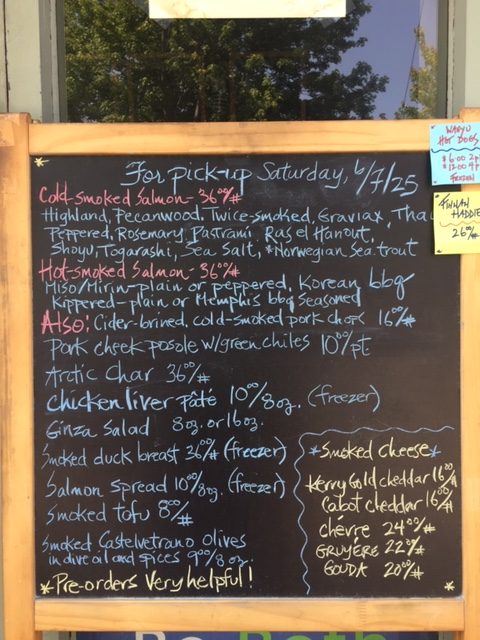 For pick-up Saturday, 6/7/25
Cold-smoked Salmon- 36⁰⁰/#
Highland, Pecanwood, Twice-smoked, Graviax, Thai
Peppered, Rosemary Pastrami, Ras el Hanout,
Shoyu, Togarashi, Sea Salt, *Norwegian Sea trout
Hot-smoked Salmon- 36⁰⁰/#
Miso/Mirin-plain or peppered, Korean bbq
Kippered-plain or Memphis bbq Seasoned
Also: Cider-brined, cold-smoked pork chops 16⁰⁰/#
Pork cheek posole w/green chiles 10⁰⁰/pt
Arctic Char 36⁰⁰/#
Chicken liver Pâté 10⁰⁰/8oz. (freezer)
Ginza Salad 8oz. or 16oz.
Smoked duck breast 36⁰⁰/# (freezer)
Salmon Spread 10⁰⁰/8oz. (freezer)
Smoked Tofu 8⁰⁰/#
Smoked Castelvetrano Olives
in olive oil and spices 9⁰⁰/8oz.
*Pre-orders Very helpful! *
*Smoked Cheese*
Kerry Gold cheddar 16⁰⁰/#
Cabot cheddar 16⁰⁰/#
Chévre 24⁰⁰/#
GRUYÉRE 22⁰⁰/#
GOUDA 20⁰⁰/#
WAGYU
HOT DOGS
$6.00 2p
$12.00 4p
FROZEN
FINNAN
HADDIE
26⁰⁰/#